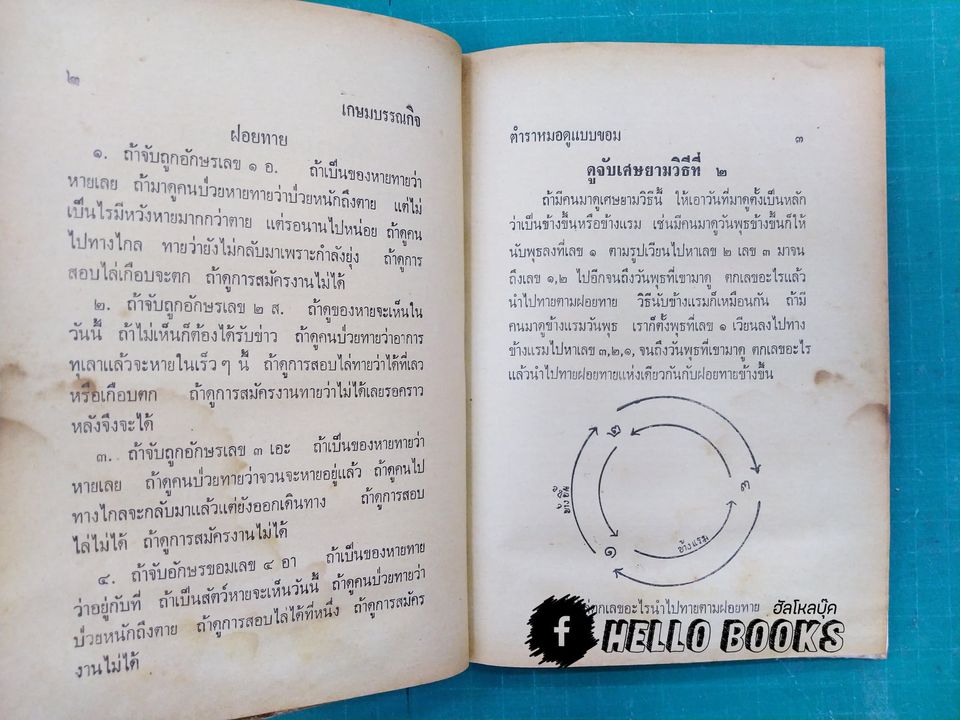 ๒
เกษมบรรณกิจ
ฝอยทาย
๑. ถ้าจับถูกอักษรเลข ๑ อ. ถ้าเป็นของหายทายว่า
หายเลย ถ้ามาดูคนป่วยหายทายว่าป่วยหนักถึงตาย แต่ไม่
เป็นไรมีหวังหายมากกว่าตาย แต่รอนานไปหน่อย ถ้าดูคน
ไปทางไกล ทายว่ายังไม่กลับมาเพราะกำลังยุ่ง ถ้าดูการ
สอบไล่เกือบจะตก ถ้าดูการสมัครงานไม่ได้
๒. ถ้าจับถูกอักษรเลข ๒ ส. ถ้าดูของหายจะเห็นใน
วันนี้ ถ้าไม่เห็นก็ต้องได้รับข่าว ถ้าดูคนป่วยทายว่าอาการ
ทุเลาแล้วจะหายในเร็ว ๆ นี้ ถ้าดูการสอบไล่ทายว่าได้ที่เลว
หรือเกือบตก ถ้าดูการสมัครงานทายว่าไม่ได้เลยรอคราว
หลังจึงจะได้
๓. ถ้าจับถูกอักษรเลข ๓ เอะ ถ้าเป็นของหายทายว่า
หายเลย ถ้าดูคนป่วยทายว่าจวนจะหายอยู่แล้ว ถ้าดูคนไป
ทางไกลจะกลับมาแล้วแต่ยังออกเดินทาง ถ้าดูการสอบ
ไล่ไม่ได้ ถ้าดูการสมัครงานไม่ได้
๔. ถ้าจับอักษรขอมเลข ๔ อา ถ้าเป็นของหายทาย
ว่าอยู่กับที่ ถ้าเป็นสัตว์หายจะเห็นวันนี้ ถ้าดูคนป่วยทายว่า
ป่วยหนักถึงตาย ถ้าดูการสอบไล่ได้ที่หนึ่ง ถ้าดูการสมัคร
งานไม่ได้
ตำราหมอดูแบบขอม ๓
ดูจับเศษยามวิธีที่ ๒
ถ้ามีคนมาดูเศษยามวิธีนี้ ให้เอาวันที่มาดูตั้งเป็นหลัก
ว่าเป็นข้างขึ้นหรือข้างแรม เช่นมีคนมาดูวันพุธข้างขึ้นก็ให้
นับพุธลงที่เลข ๑ ตามรูปเวียนไปหาเลข ๒ เลข ๓ มาจน
ถึงเลข ๑,๒ ไปอีกจนถึงวันพุธที่เขามาดู ตกเลขอะไรแล้ว
นำไปทายตามฝอยทาย วิธีนับข้างแรมก็เหมือนกัน ถ้ามี
คนมาดูข้างแรมวันพุธ เราก็ตั้งพุธที่เลข ๑ เวียนลงไปทาง
ข้างแรมไปหาเลข ๓,๒,๑, จนถึงวันพุธที่เขามาดู ตกเลขอะไร
แล้วนำไปทายฝอยทายแห่งเดียวกันกับฝอยทายข้างขึ้น
๒
๓
ข้างขึ้น
ข้างแรม
๑
ตกเลขอะไรนำไปทายตามฝอยทาย
ฮัลโหลบุ๊ค
f HELLO BOOKS